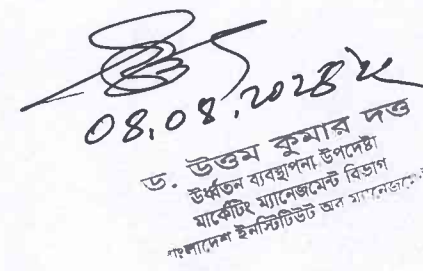 ড. উত্তম কুমার দত্ত
উর্ধ্বতন ব্যবস্থাপনা উপদেষ্টা
মার্কেটিং ম্যানেজমেন্ট বিভাগ
বাংলাদেশ ইনস্টিটিউট অব ম্যানেজমেন্ট